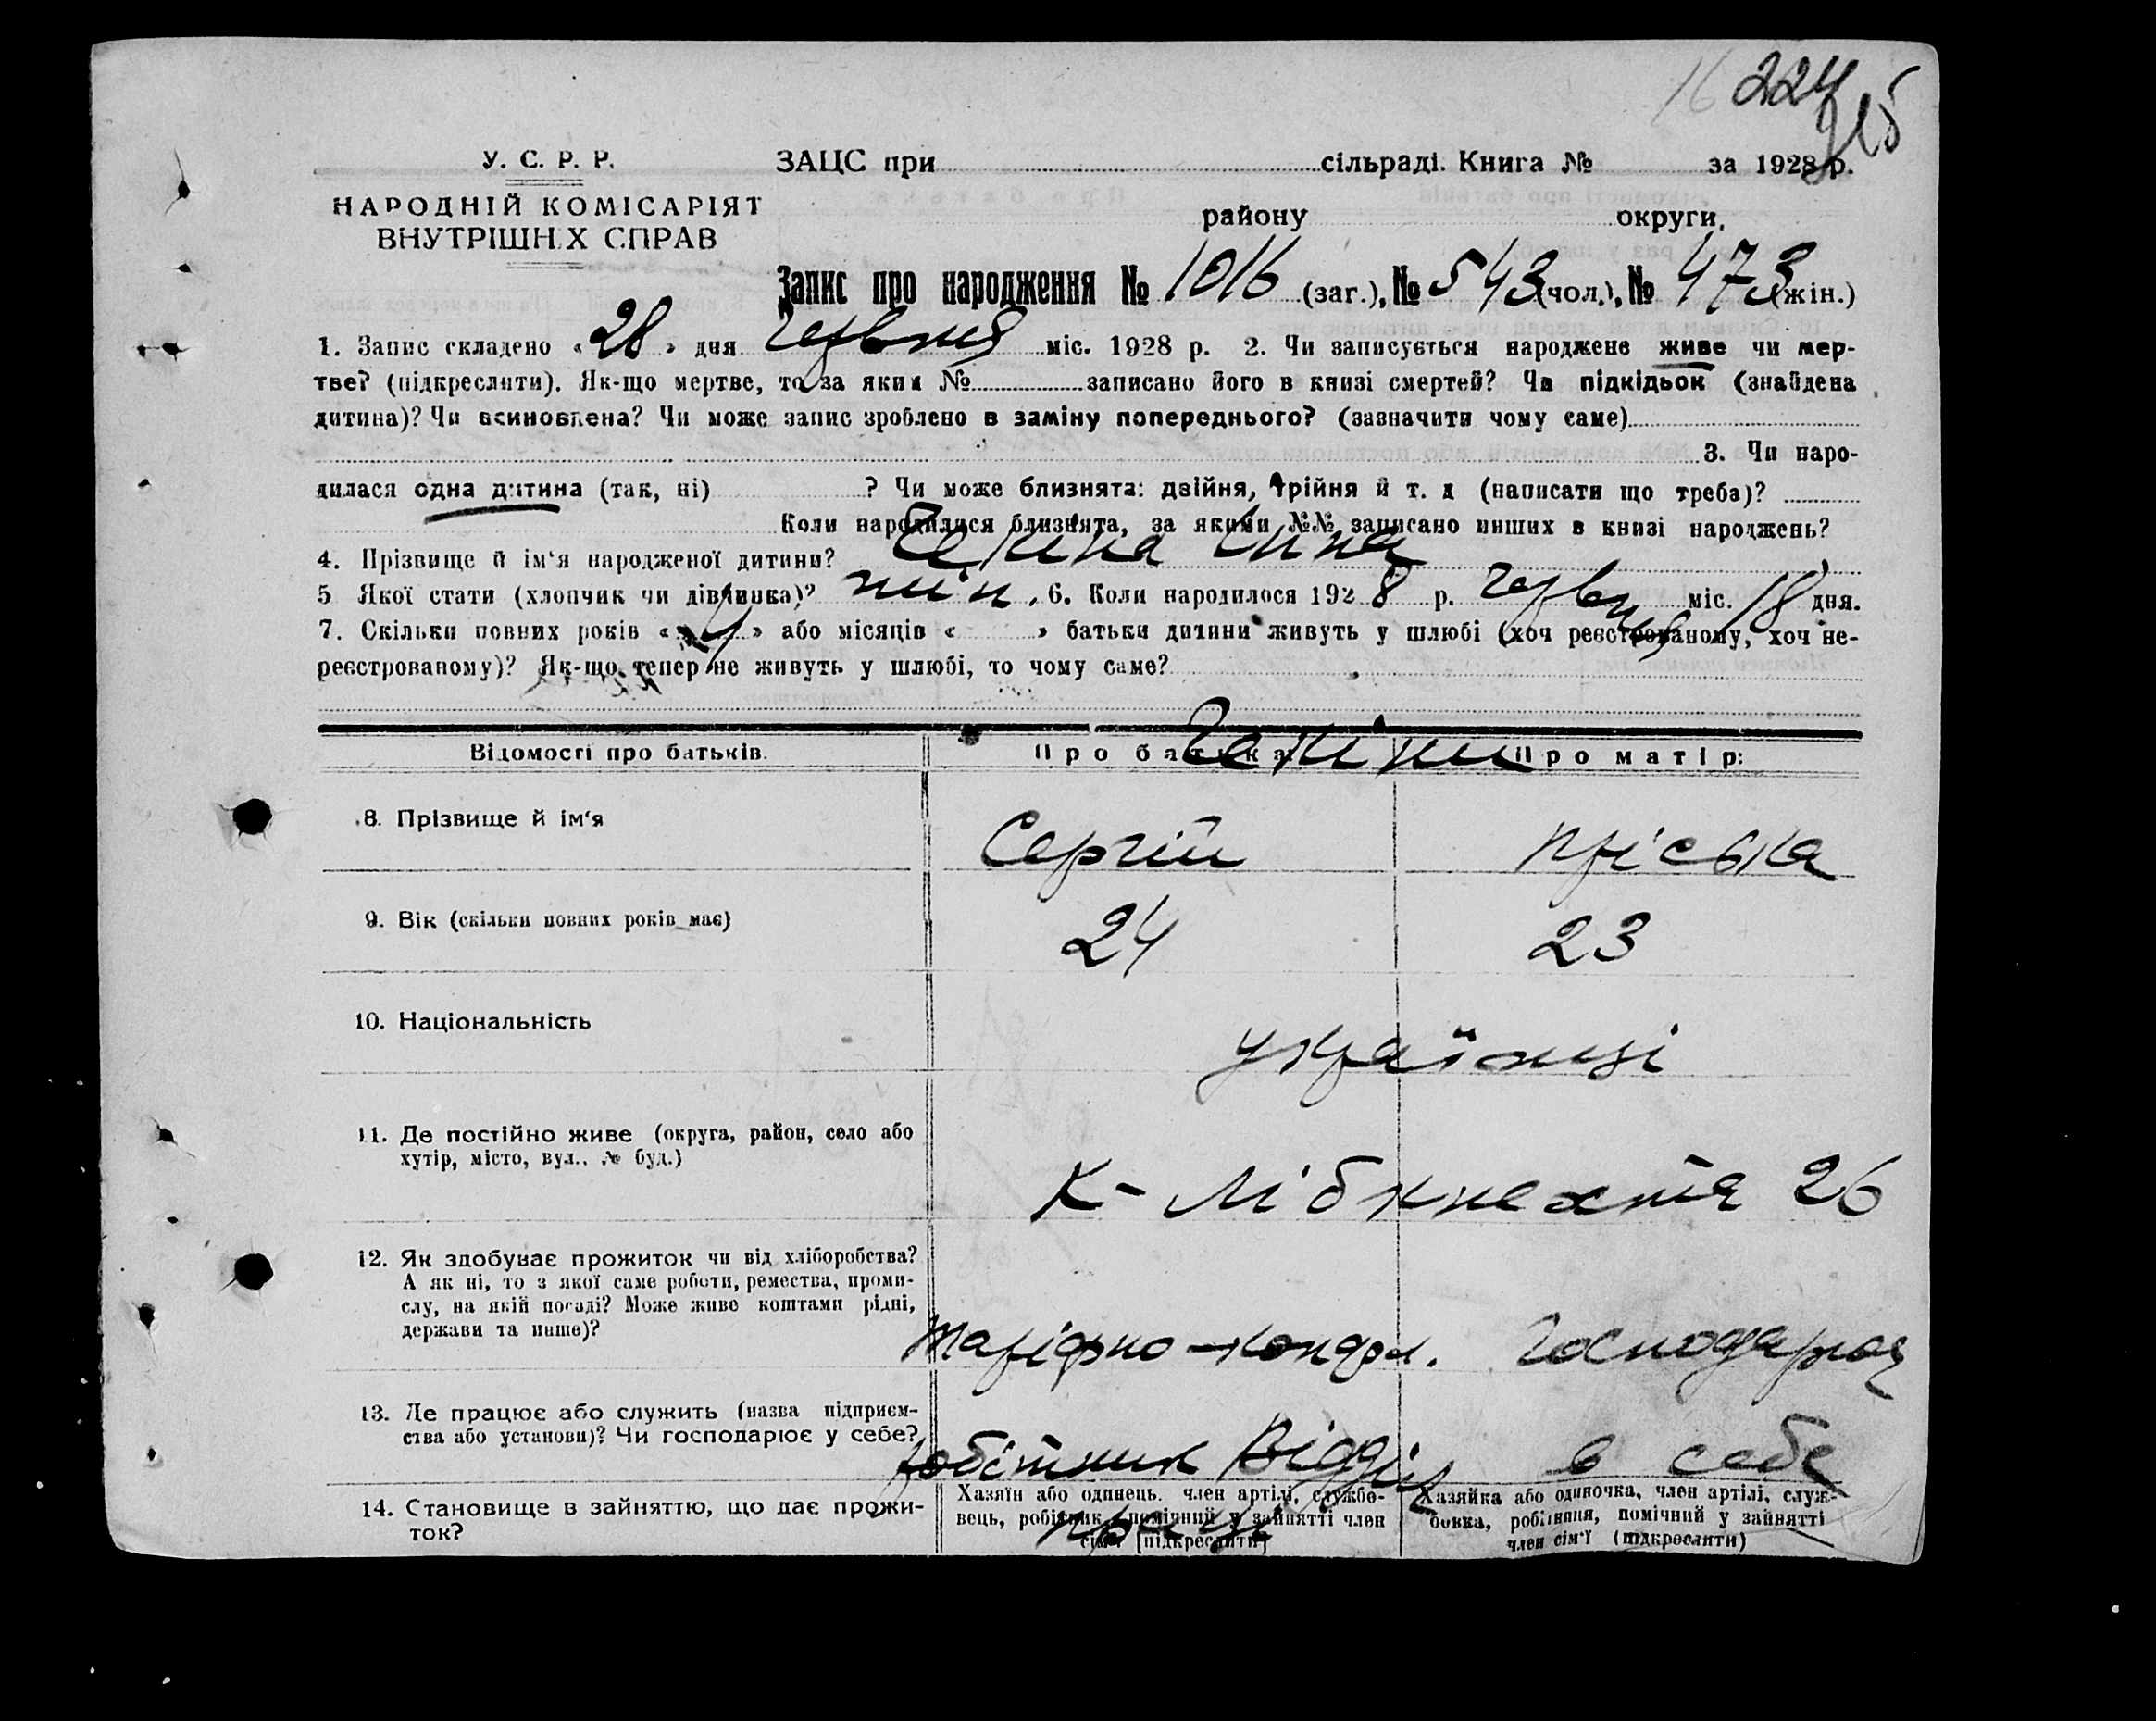 16 224
215
У. С. Р. Р. ЗАЦС при сільраді. Книга № за 1928 р.
НАРОДНІЙ КОМІСАРІЯТ
ВНУТРІШНІХ СПРАВ
району округи,
Запис про народження № 1016 (заг.), № 543 (чол.), № 473 (жін.)
1. Запис складено «28» дня червня міс. 1928 р. 2. Чи записується народжене живе чи мер-
тве? (підкреслити). Як-що мертве, то за яким № записано його в книзі смертей? Чи підкідьок (знайдена
дитина)? Чи всиновлена? Чи може запис зроблено в заміну попереднього? (зазначити чому саме)
3. Чи наро-
дилася одна дитина (так, ні) ? Чи може близнята: двійня, трійня й т. д (написати що треба)?
Коли народилися близнята, за якими №№ записано инших в книзі народжень?
4. Прізвище й ім'я народженої дитини?
5 Якої стати (хлопчик чи дівчинка)? жін. 6. Коли народилося 1928 р. червня міс. 18 дня.
7. Скільки повних років «4» або місяців « » батьки дитини живуть у шлюбі (хоч реєстрованому, хоч не-
реєстрованому)? Як-що тепер не живуть у шлюбі, то чому саме?
Відомості про батьків. Про батька: Про матір:
8. Прізвище й ім'я Сергій Пріська
9. Вік (скільки повних років має) 24 23
10. Національність українці
11. Де постійно живе (округа, район, село або
хутір, місто, вул., № буд.) К-Лібкнехта 26
12. Як здобуває прожиток чи від хліборобства?
А як ні, то з якої саме роботи, ремества, проми-
слу, на якій посаді? Може живе коштами рідні,
держави та инше)? Господарює
13. Де працює або служить (назва підприєм-
ства або установи)? Чи господарює у себе? робітник Відділ в себе
праці
14. Становище в зайняттю, що дає прожи-
ток?
Хазяїн або одинець. член артілі, службо-
вець, робітник, помічний у зайнятті член
сім'ї (підкреслити)
Хазяйка або одиночка, член артілі, служ-
бовка, робітниця, помічний у зайнятті
член сім'ї (підкреслити)